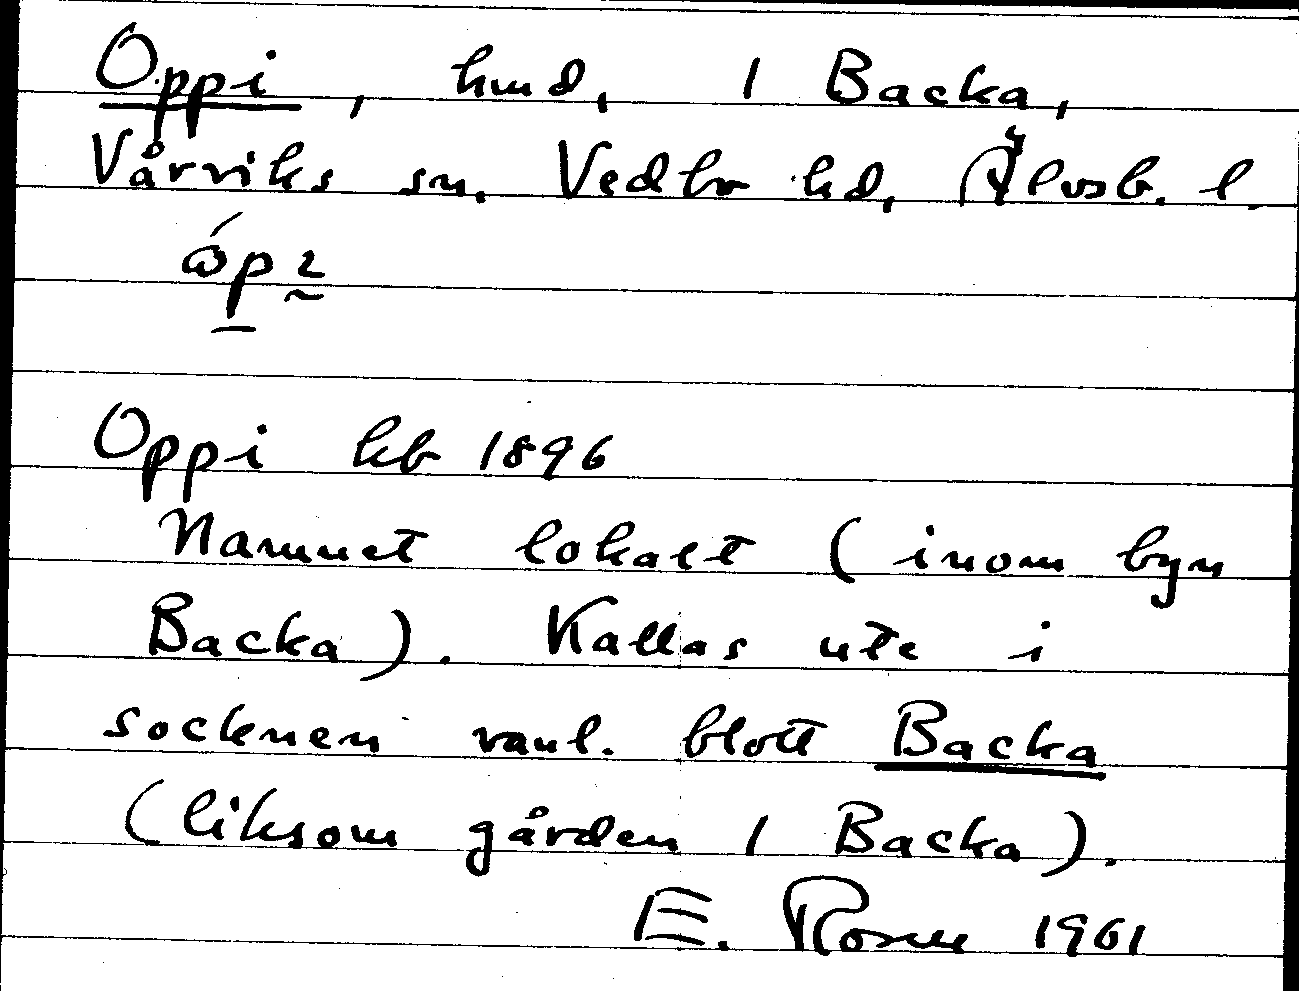 Oppi, hmd, 1 Backa,
Vårviks sn, Vedbo hd, Älvsb. l.
Oppi kb 1896
Namnet lokalt (inom byn
Backa). Kallas ute i
socknen vanl. blott Backa
(liksom gården 1 Backa).
E. Rosell 1961